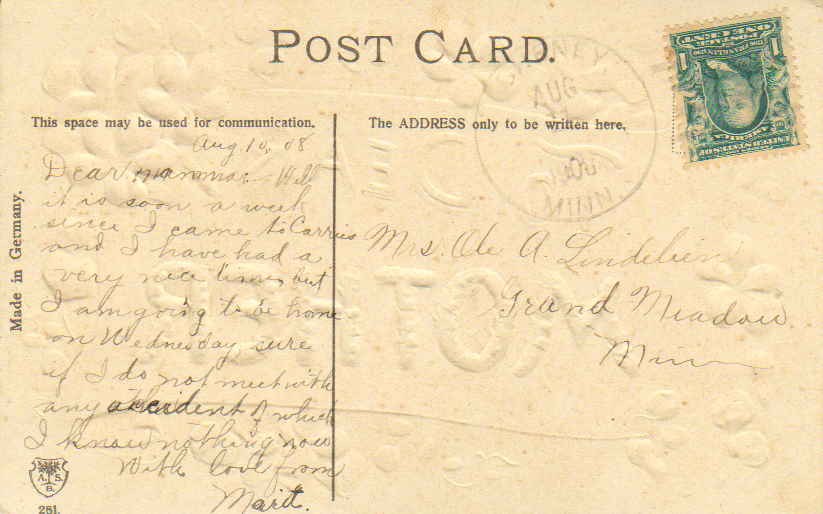 POST CARD.
This space may be used for communication.
The ADDRESS only to be written here.
Made in Germany.
Aug 10, 08
Dear mamma:- Well
it is soon a week
since I came to Carries
and I have had a
very nice time, but
I am going to be home
on Wednesday sure
if I do not meet with
any accident of which
I know nothing now
With love from
Marit.
Mrs. Ole A.
Grand Meadow
Minn
AUG
MINN
ONE CENT
1 1
A. S.
B.
281.
MOTHER